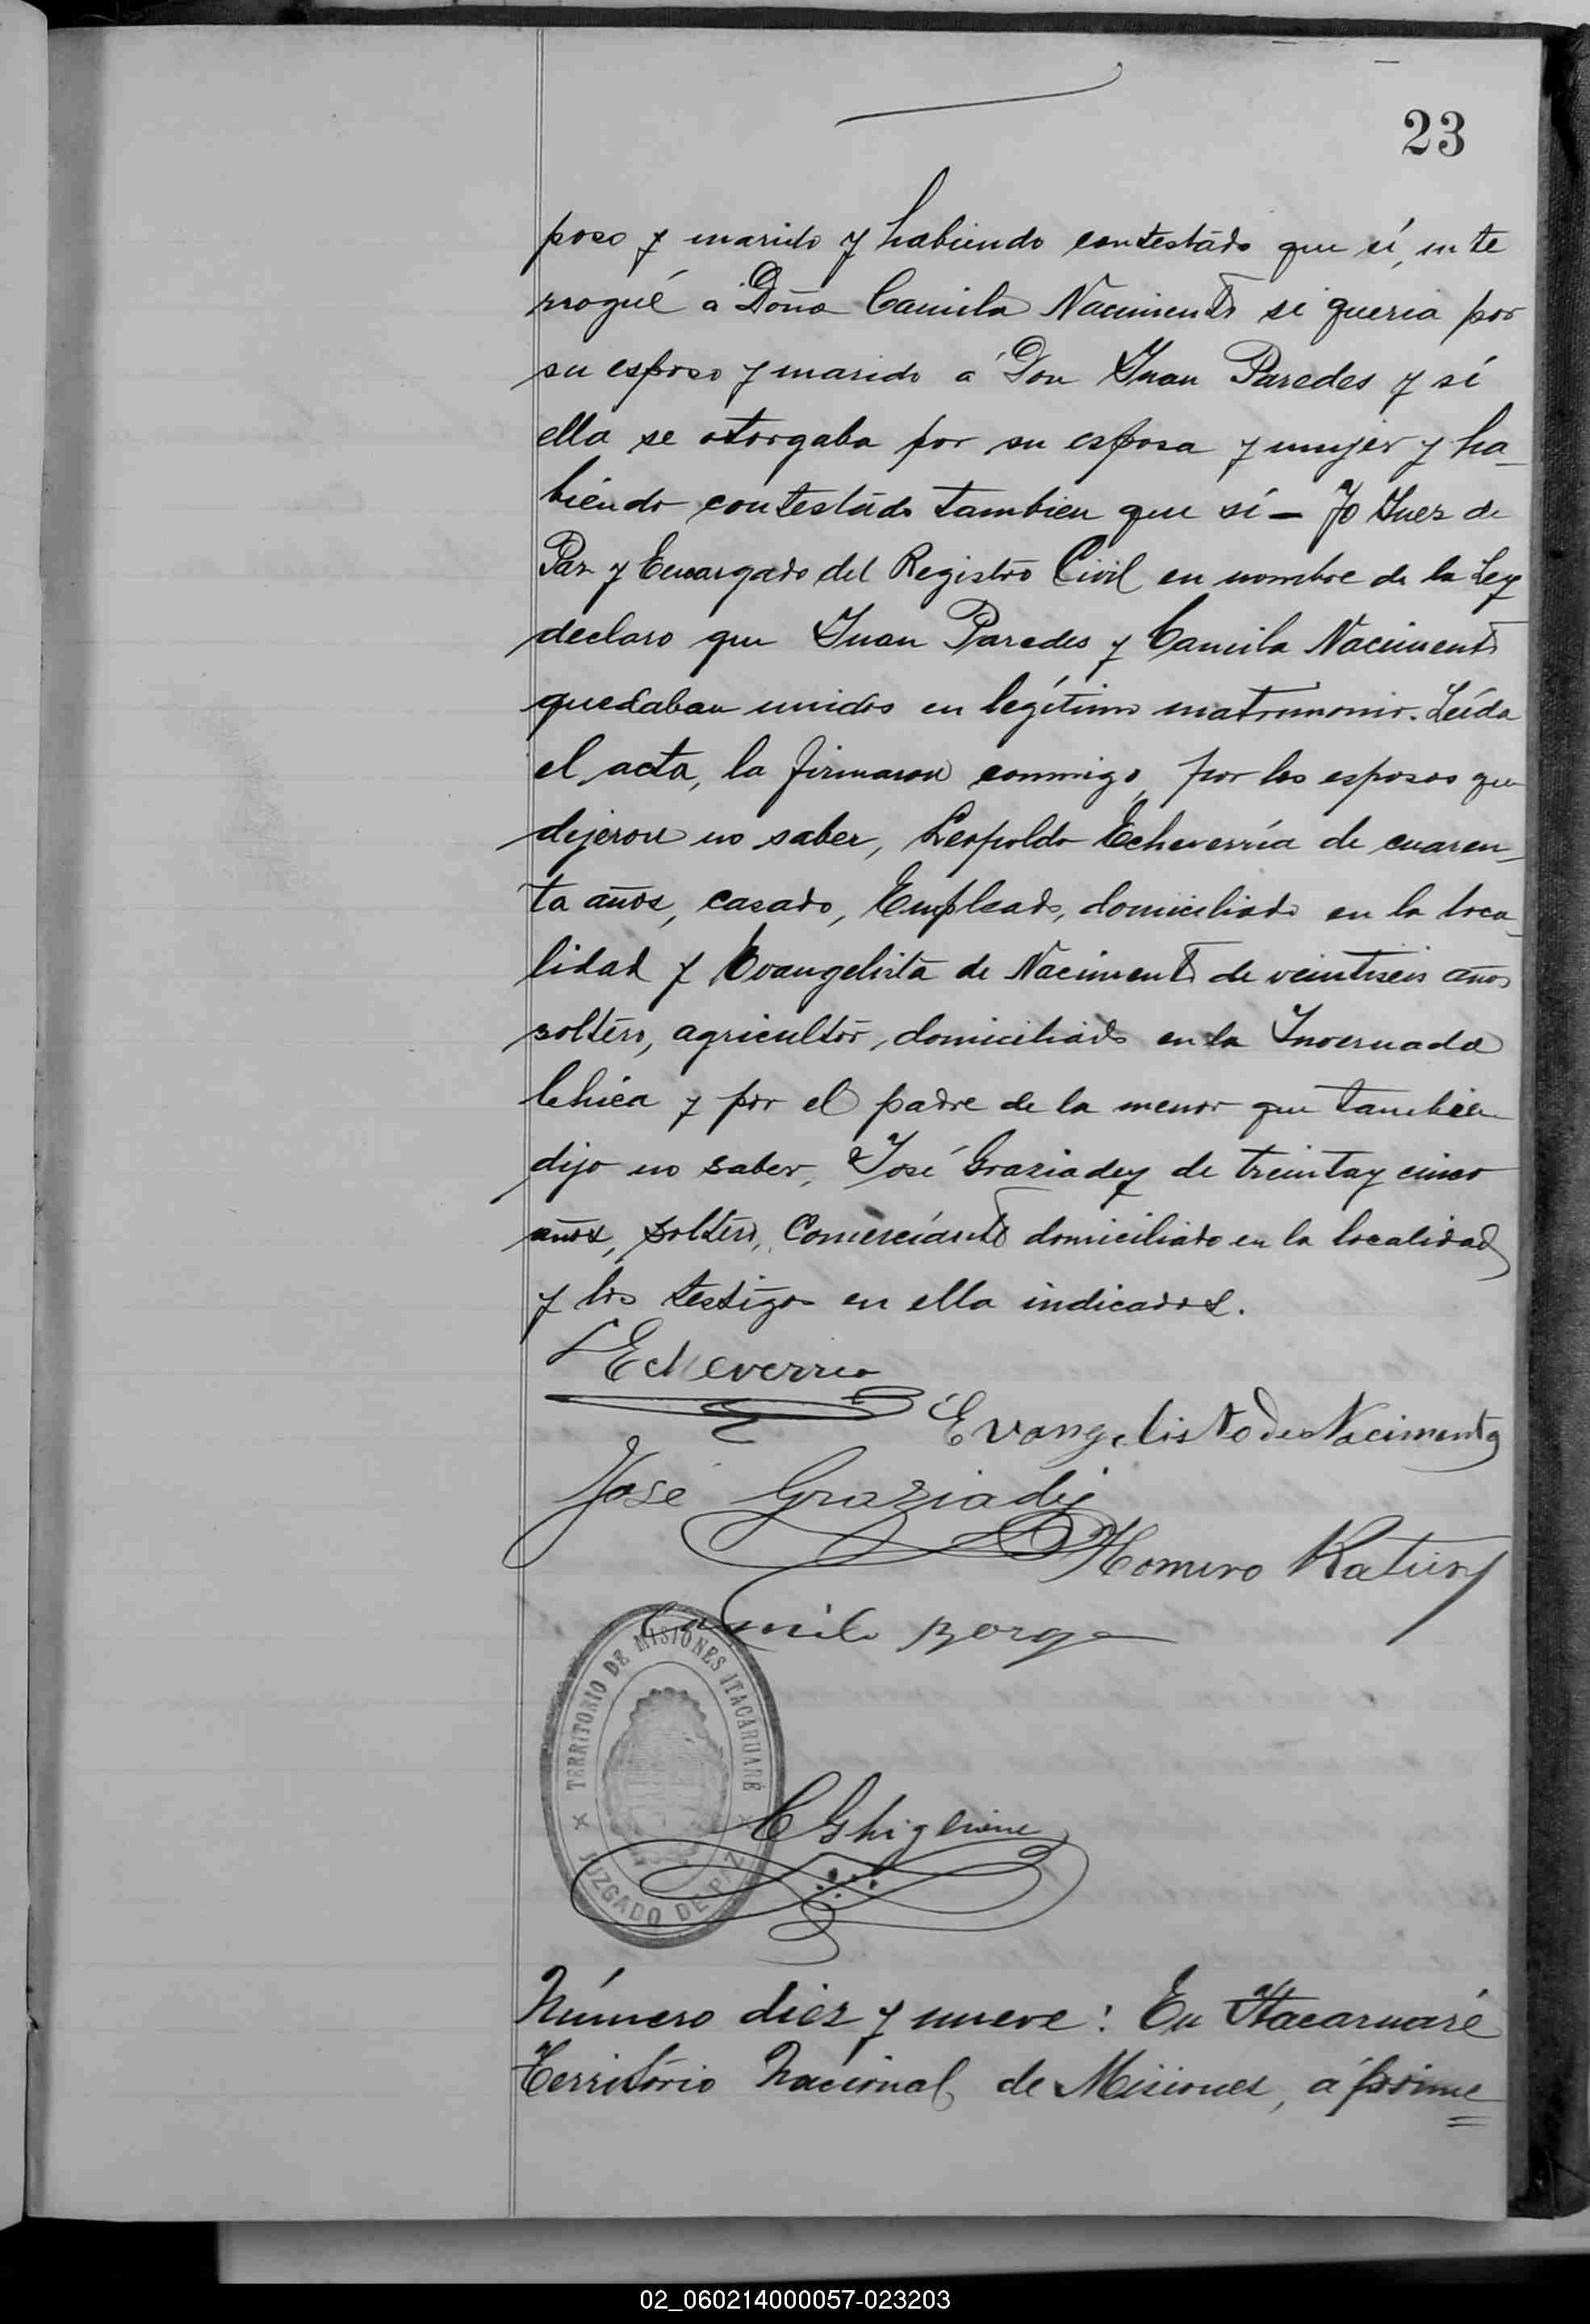 23
poso y marido y habiendo contestado que sí, inte
rrogué a Doña Camila Naciment si queria por
su esposo y marido á Don Juan Paredes y sí
ella se otorgaba por su esposa y mujer y ha_
biendo contestado tambien que sí — Yo Juez de
Paz y Encargado del Registro Civil en nombre de la Ley
declaro que Juan Paredes y Camila Naciment
quedaban unidos en legítimo matrimonio. Leída
el acta, la firmaron conmigo, por los esposos que
dijeron no saber, Leopoldo Echeverría de cuaren_
ta años, casado, Empleado, domiciliado en la loca_
lidad y Evangelista de Naciment de veintiseis años
soltero, agricultor, domiciliado en la Invernada
Chica y por el padre de la menor que tambien
dijo no saber, José Graziadey de treinta y cinco
años, soltero, Comerciante domiciliado en la localidad
y los testigos en ella indicados.
L Echeverria
Evangelisto de Nacimento
José Graziadei
Homero
Camilo Borge
TERRITORIO DE MISIONES ITACARUARÉ
JUZGADO DE PAZ
C Ghiglione
Número diez y nueve: En Itacaruaré
Territorio Nacional de Misiones, á prime
02_060214000057-023203